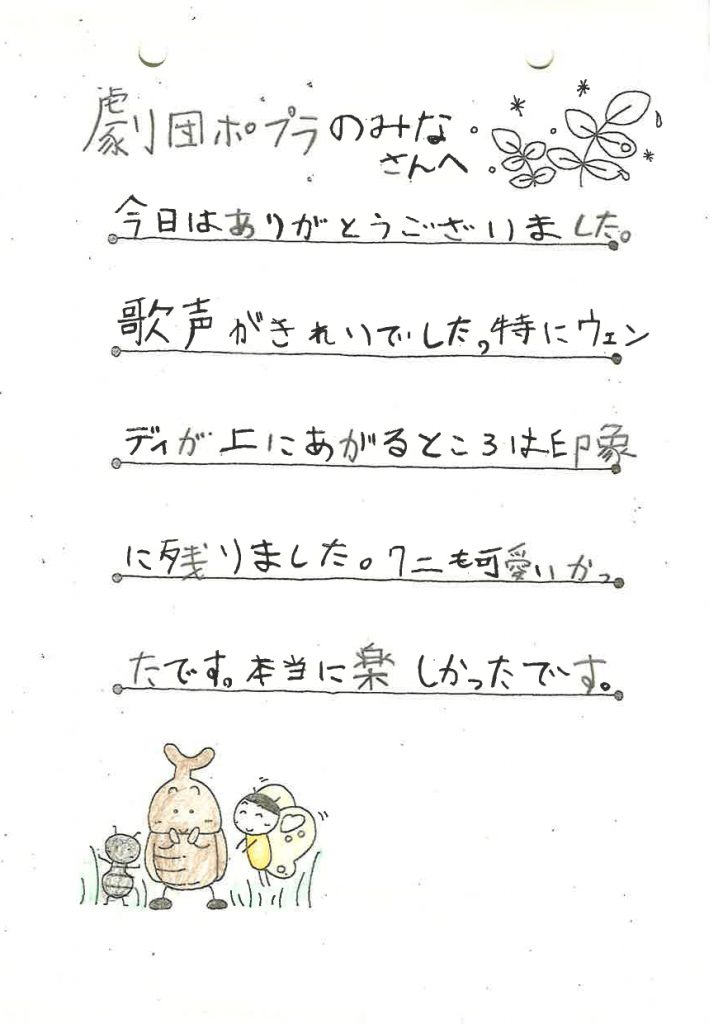 劇団ポプラのみな
さんへ
今日はありがとうございました。
歌声がきれいでした。特にウェン
ディが上にあがるところは印象
に残りました。ワニも可愛いかっ
たです。本当に楽しかったです。